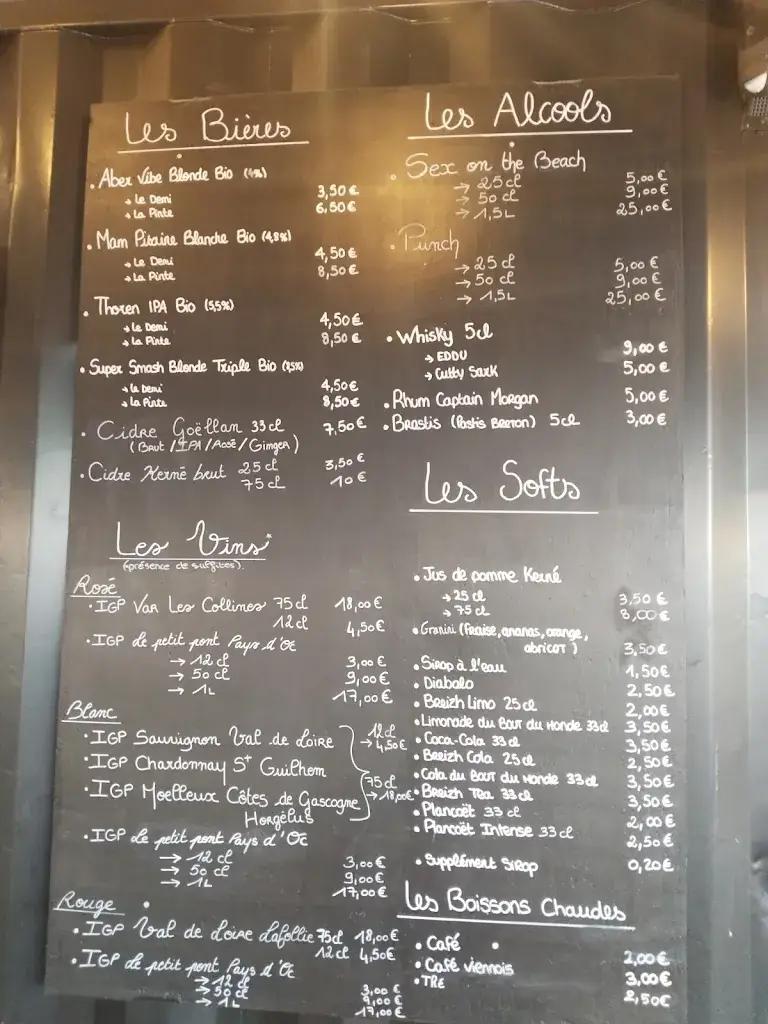 Les Bières
. Aber Vibe Blonde Bio (4%)
→ Le Demi 3,50€
→ La Pinte 6,50€
. Mam Pitaine Blanche Bio (4,8%)
→ Le Demi 4,50€
→ La Pinte 8,50€
. Thoren IPA Bio (5,5%)
→ Le Demi 4,50€
→ La Pinte 8,50€
. Super Smash Blonde Triple Bio
→ Le Demi 4,50€
→ La Pinte 8,50€
. Cidre Goëllan 33cl 7,50€
(Brut / IPA / Rosé / Gimger)
. Cidre Kerné brut 25cl 3,50€
75cl 10€
Les Vins*
(présence de sulfites).
Rosé
. IGP Var Les Collines 75cl 18,00€
12cl 4,50€
. IGP Le petit pont Pays d'Oc
→ 12cl 3,00€
→ 50cl 9,00€
→ 1L 17,00€
Blanc
. IGP Sauvignon Val de Loire
. IGP Chardonnay St Guilhem
. IGP Moelleux Côtes de Gascogne
Horgelus
12cl
→ 4,50€
75cl
→ 18,00€
. IGP Le petit pont Pays d'Oc
→ 12cl 3,00€
→ 50cl 9,00€
→ 1L 17,00€
Rouge
. IGP Val de Loire Lafollie 75cl 18,00€
12cl 4,50€
. IGP Le petit pont Pays d'Oc
→ 12cl 3,00€
→ 50cl 9,00€
→ 1L 17,00€
Les Alcools
. Sex on the Beach
→ 25cl 5,00€
→ 50cl 9,00€
→ 1,5L 25,00€
. Punch
→ 25cl 5,00€
→ 50cl 9,00€
→ 1,5L 25,00€
. Whisky 5cl
→ EDDU 9,00€
→ Cutty Sark 5,00€
. Rhum Captain Morgan 5,00€
. Brastis (Pastis Breton) 5cl 3,00€
Les Softs
. Jus de pomme Kerné
→ 25cl 3,50€
→ 75cl 8,00€
. Granini (fraise, ananas, orange,
abricot) 3,50€
. Sirop à l'eau 1,50€
. Diabolo 2,50€
. Breizh Limo 25cl 2,00€
. Limonade du Bout du Monde 33cl 3,50€
. Coca-Cola 33cl 3,50€
. Breizh Cola 25cl 2,50€
. Cola du Bout du Monde 33cl 3,50€
. Breizh Tea 33cl 3,50€
. Plancoët 33cl 2,00€
. Plancoët Intense 33cl 2,50€
. Supplément Sirop 0,20€
Les Boissons Chaudes
. Café 2,00€
. Café viennois 3,00€
. Thé 2,50€